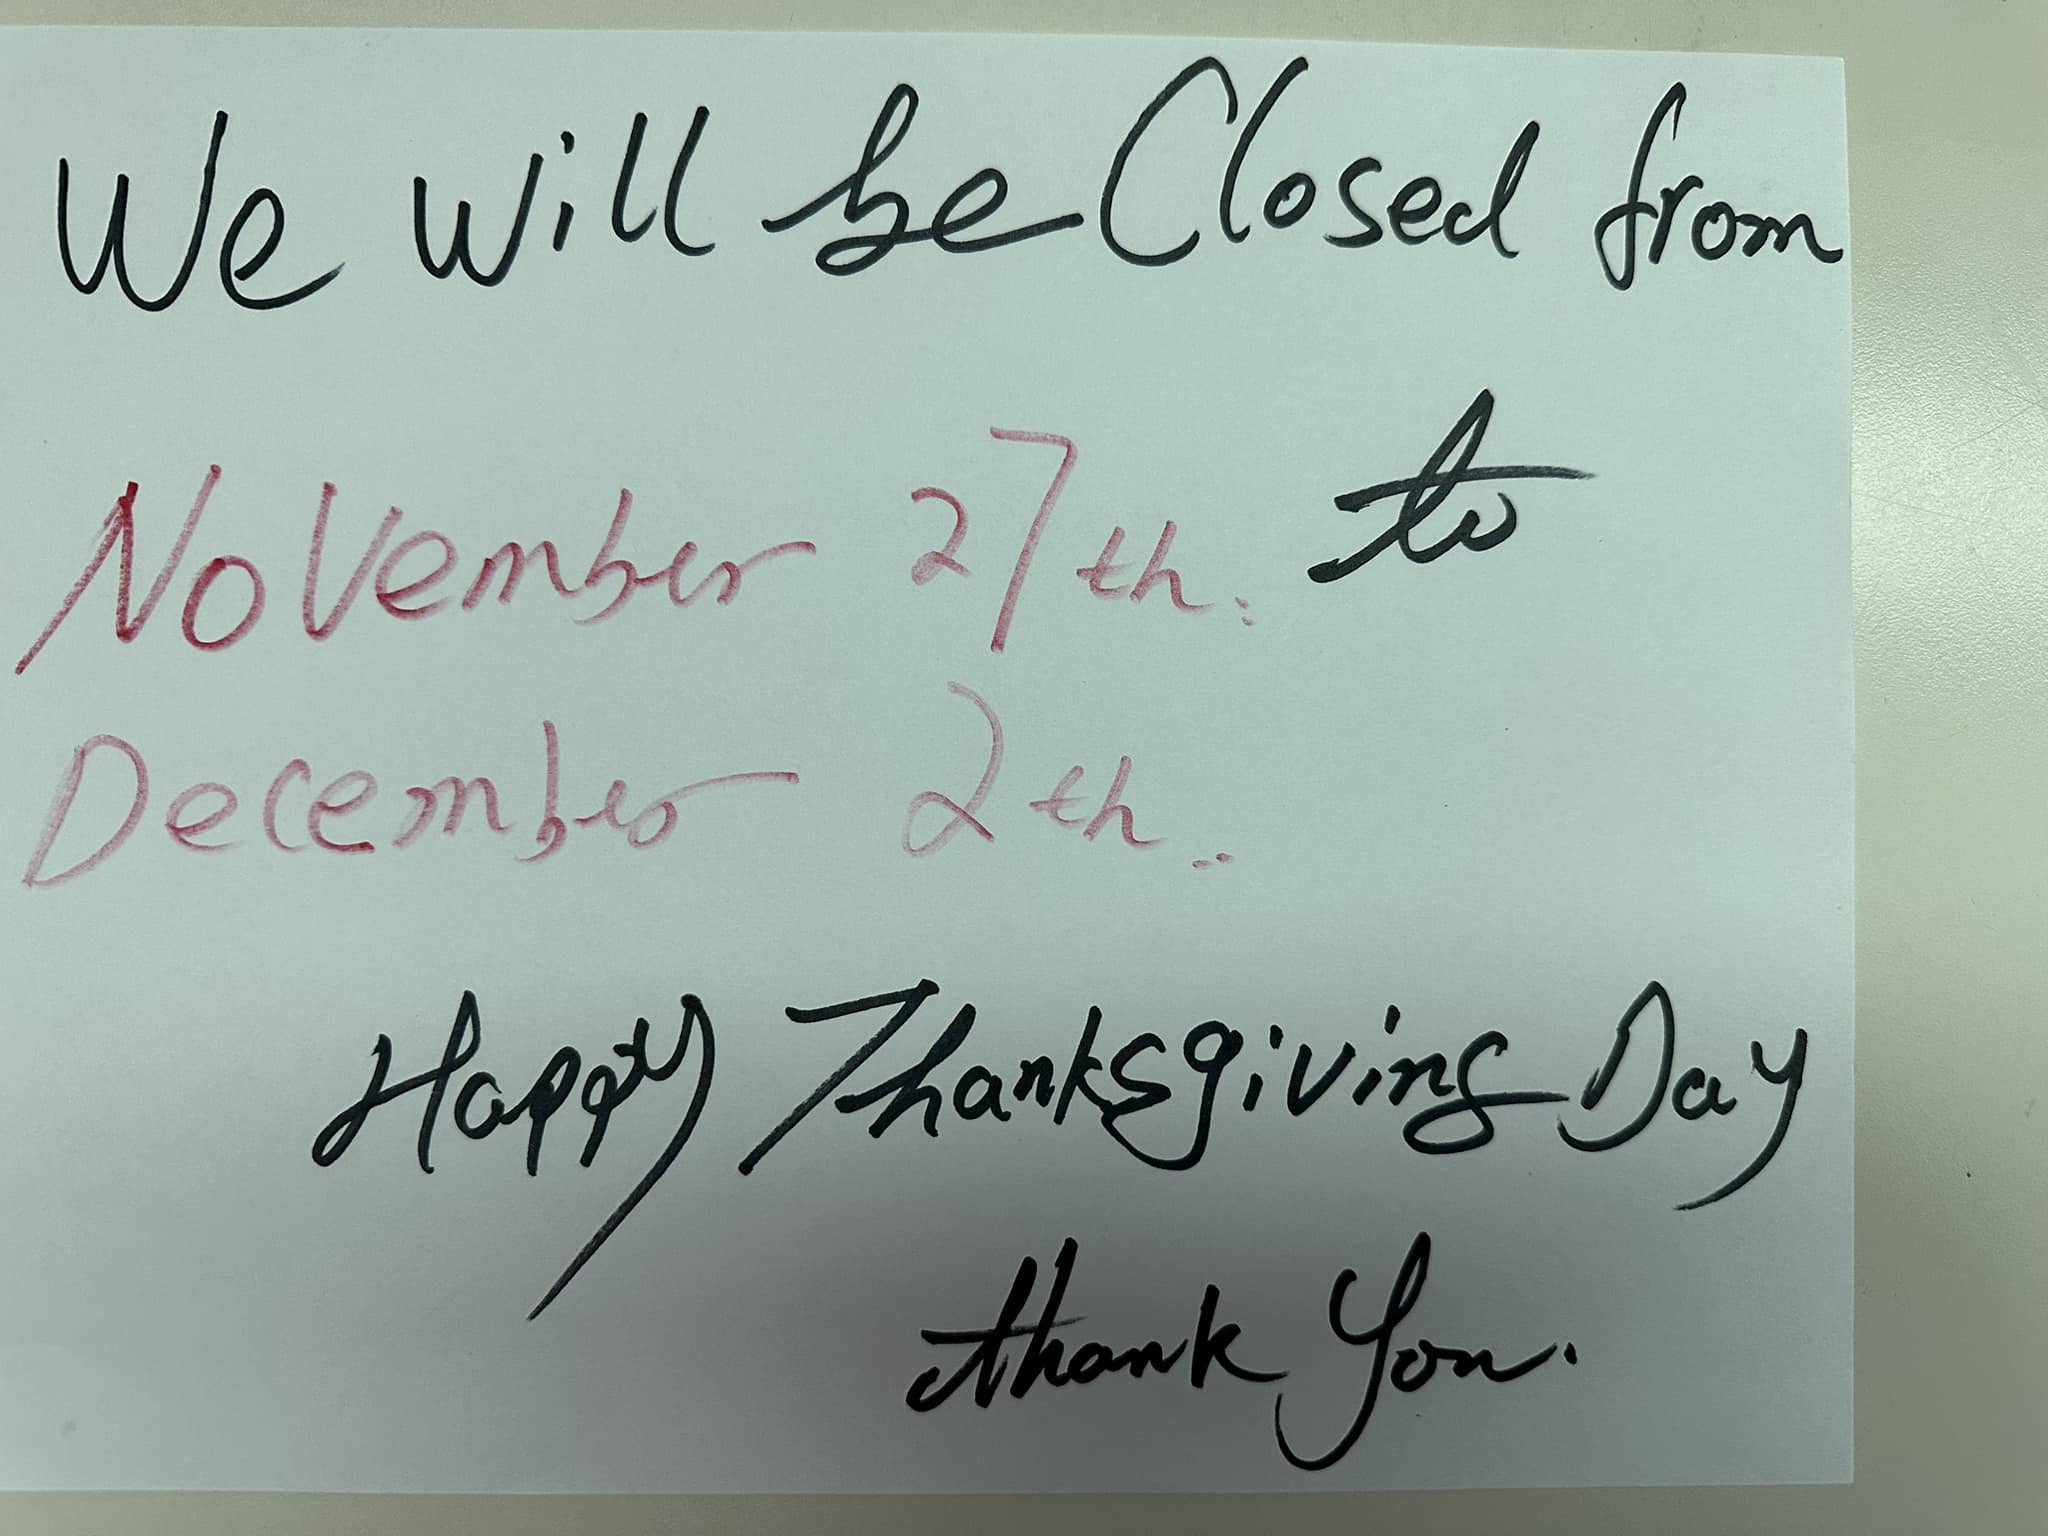 We will be Closed from
November 27th. to
December 2th..
Happy Thanksgiving Day
thank you.